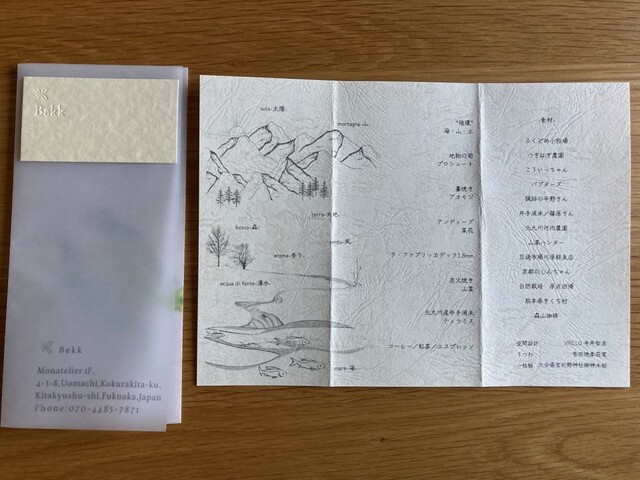 Bekk
Bekk
Monatelier 1F,
4-3-8,Uomachi,Kokurakita-ku,
Kitakyushu-shi,Fukuoka,Japan
Phone:070-4485-7871
sole-太陽-
montagne-山-
terra-大地-
bosco-森-
vento-風-
aroma-香り-
acqua di fonte-湧水-
mare-海-
"循環"
海・山・土
地物の筍
プロシュート
藁焼き
アオモジ
アンティーブ
菜花
ラ・ファブリッカデッラ1.8mm
炭火焼き
山菜
北九州産井手浦米
ティラミス
コーヒー/紅茶/エスプレッソ
-食材-
ふくどめ小牧場
つぎはぎ農園
こういっちゃん
バブターズ
猟師の中野さん
井手浦米/篠原さん
北九州河内農園
山菜ハンター
旦過市場川原鮮魚店
京都のしんちゃん
自然栽培
熊本県きくち村
森山珈琲
空間設計
うつわ
一枚板